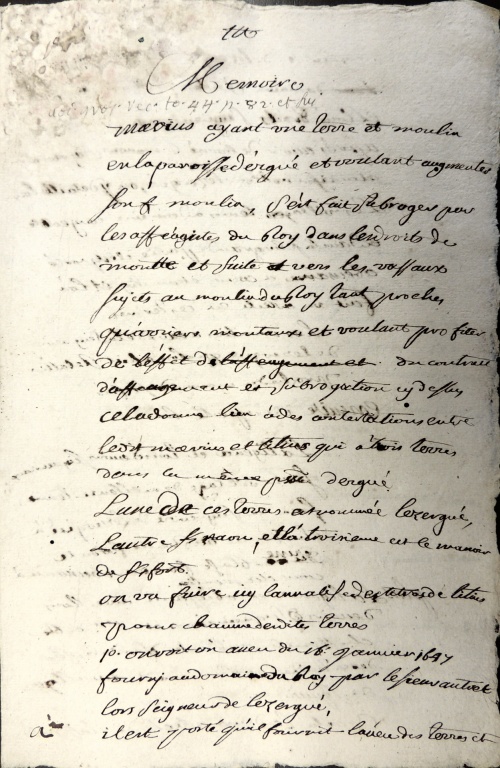 Memoire
maevius ayant une terre et moulin
en la paroisse dergué et voulant augmenter
son moulin, s'est fait subroger par
les afféagistes du Roy dans les droits de
moutte et suite et vers les vassaux
sujets au moulin du Roy tant proches
qu'arriere moutaux et voulant profiter
de l'effet de l'affeagement et du contrat
d'affeagement et subrogation cy dessus
cela donne lieu a des contestations entre
ledit maevius et titius qui a trois terres
dans la même dergué
L'une de ces terres est nommée lezergué,
L'autre et la troisieme est le manoir
de
on va faire icy l'annalise des titres de titius
pour chaune desdites terres
1o. on voit un aveu du 16 janvier 1647
fourni au domaine du Roy par le sieur autret
lors seigneur de lezergué,
il est porté qu'il fournit l'aveu des terres et
a